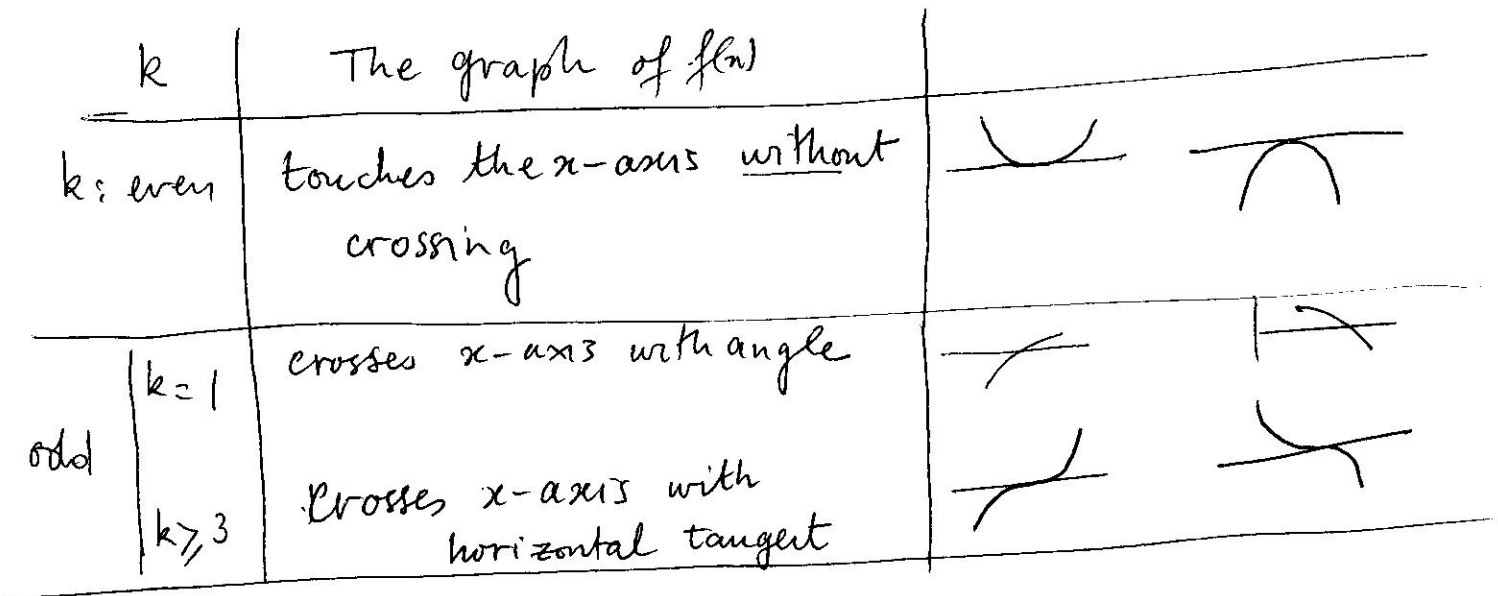 k The graph of f(x)
k: even touches the x-axis without
crossing
k=1 crosses x-axis with angle
odd
k⩾3 Crosses x-axis with
horizontal tangent